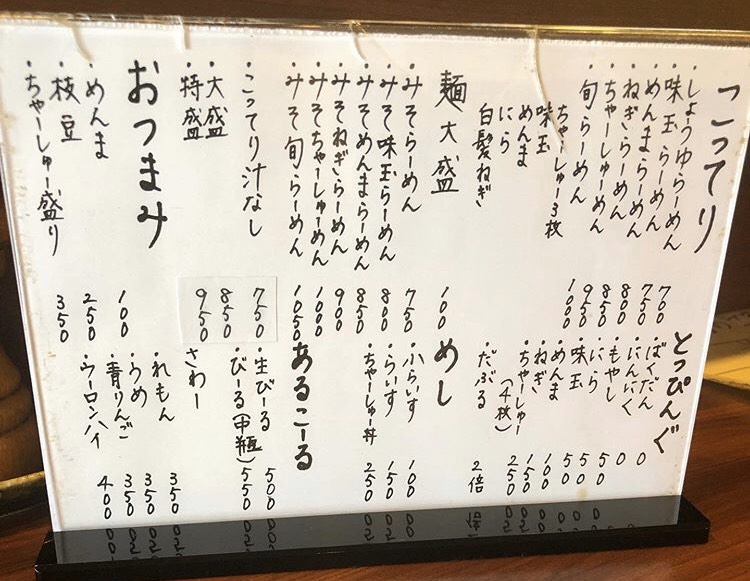 こってり
・しょうゆらーめん 700
・味玉らーめん 750
・めんまらーめん 800
・ねぎらーめん 800
・ちゃーしゅーめん 950
・旬らーめん 1000
ちゃーしゅー3枚
味玉
めんま
にら
白髪ねぎ
麺大盛 100
・みそらーめん 750
・みそ味玉らーめん 800
・みそめんまらーめん 850
・みそねぎらーめん 900
・みそちゃーしゅーめん 1000
・みそ旬らーめん 1050
・こってり汁なし 750
・大盛 850
・特盛 950
おつまみ
・めんま 100
・枝豆 250
・ちゃーしゅー盛り 350
とっぴんぐ
・ばくだん 0
・にんにく 0
・もやし 50
・にら 50
・味玉 50
・めんま 100
・ねぎ 150
・ちゃーしゅー(4枚) 250
・だぶる 2倍
めし
・小らいす 100
・らいす 150
・ちゃーしゅー丼 250
あるこーる
・生びーる 500
・びーる(中瓶) 550
さわー
・れもん 350
・うめ 350
・青りんご 350
・ウーロンハイ 400